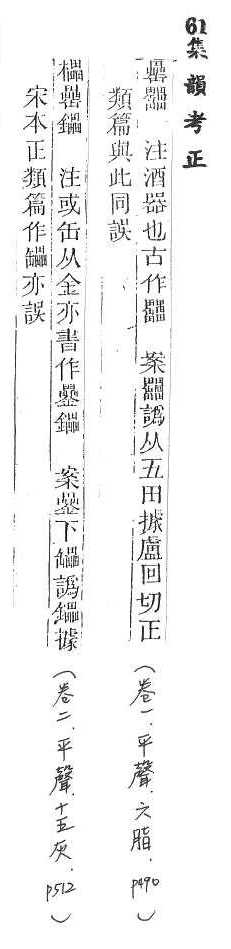 61集韻考正
罍 注酒器也古作 案 譌从五田據盧回切正
（卷一．平聲．六脂．p490）
類篇與此同誤
櫑罍鑘 注或缶从金亦書作 鑘 案 下 譌鑘據
宋本正類篇作 亦誤
（卷二．平聲．十五灰．p512）